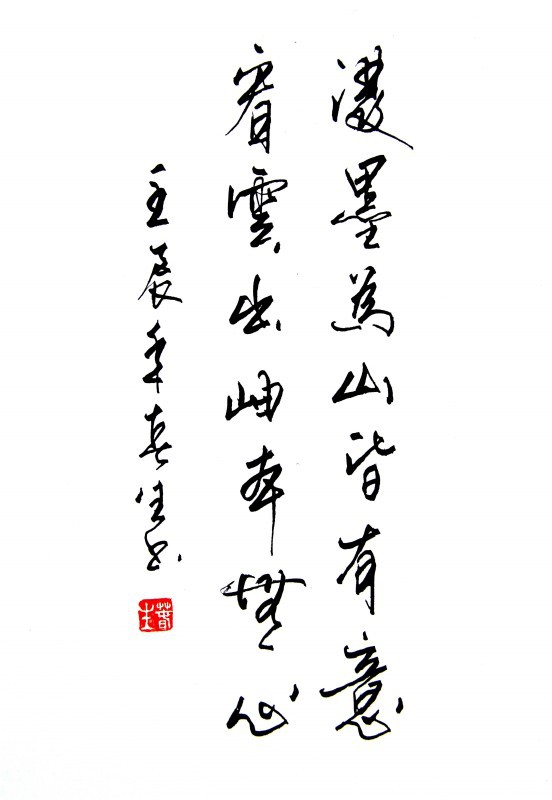 潑墨為山皆有意
看雲出岫本無心
壬辰年春生书
春生